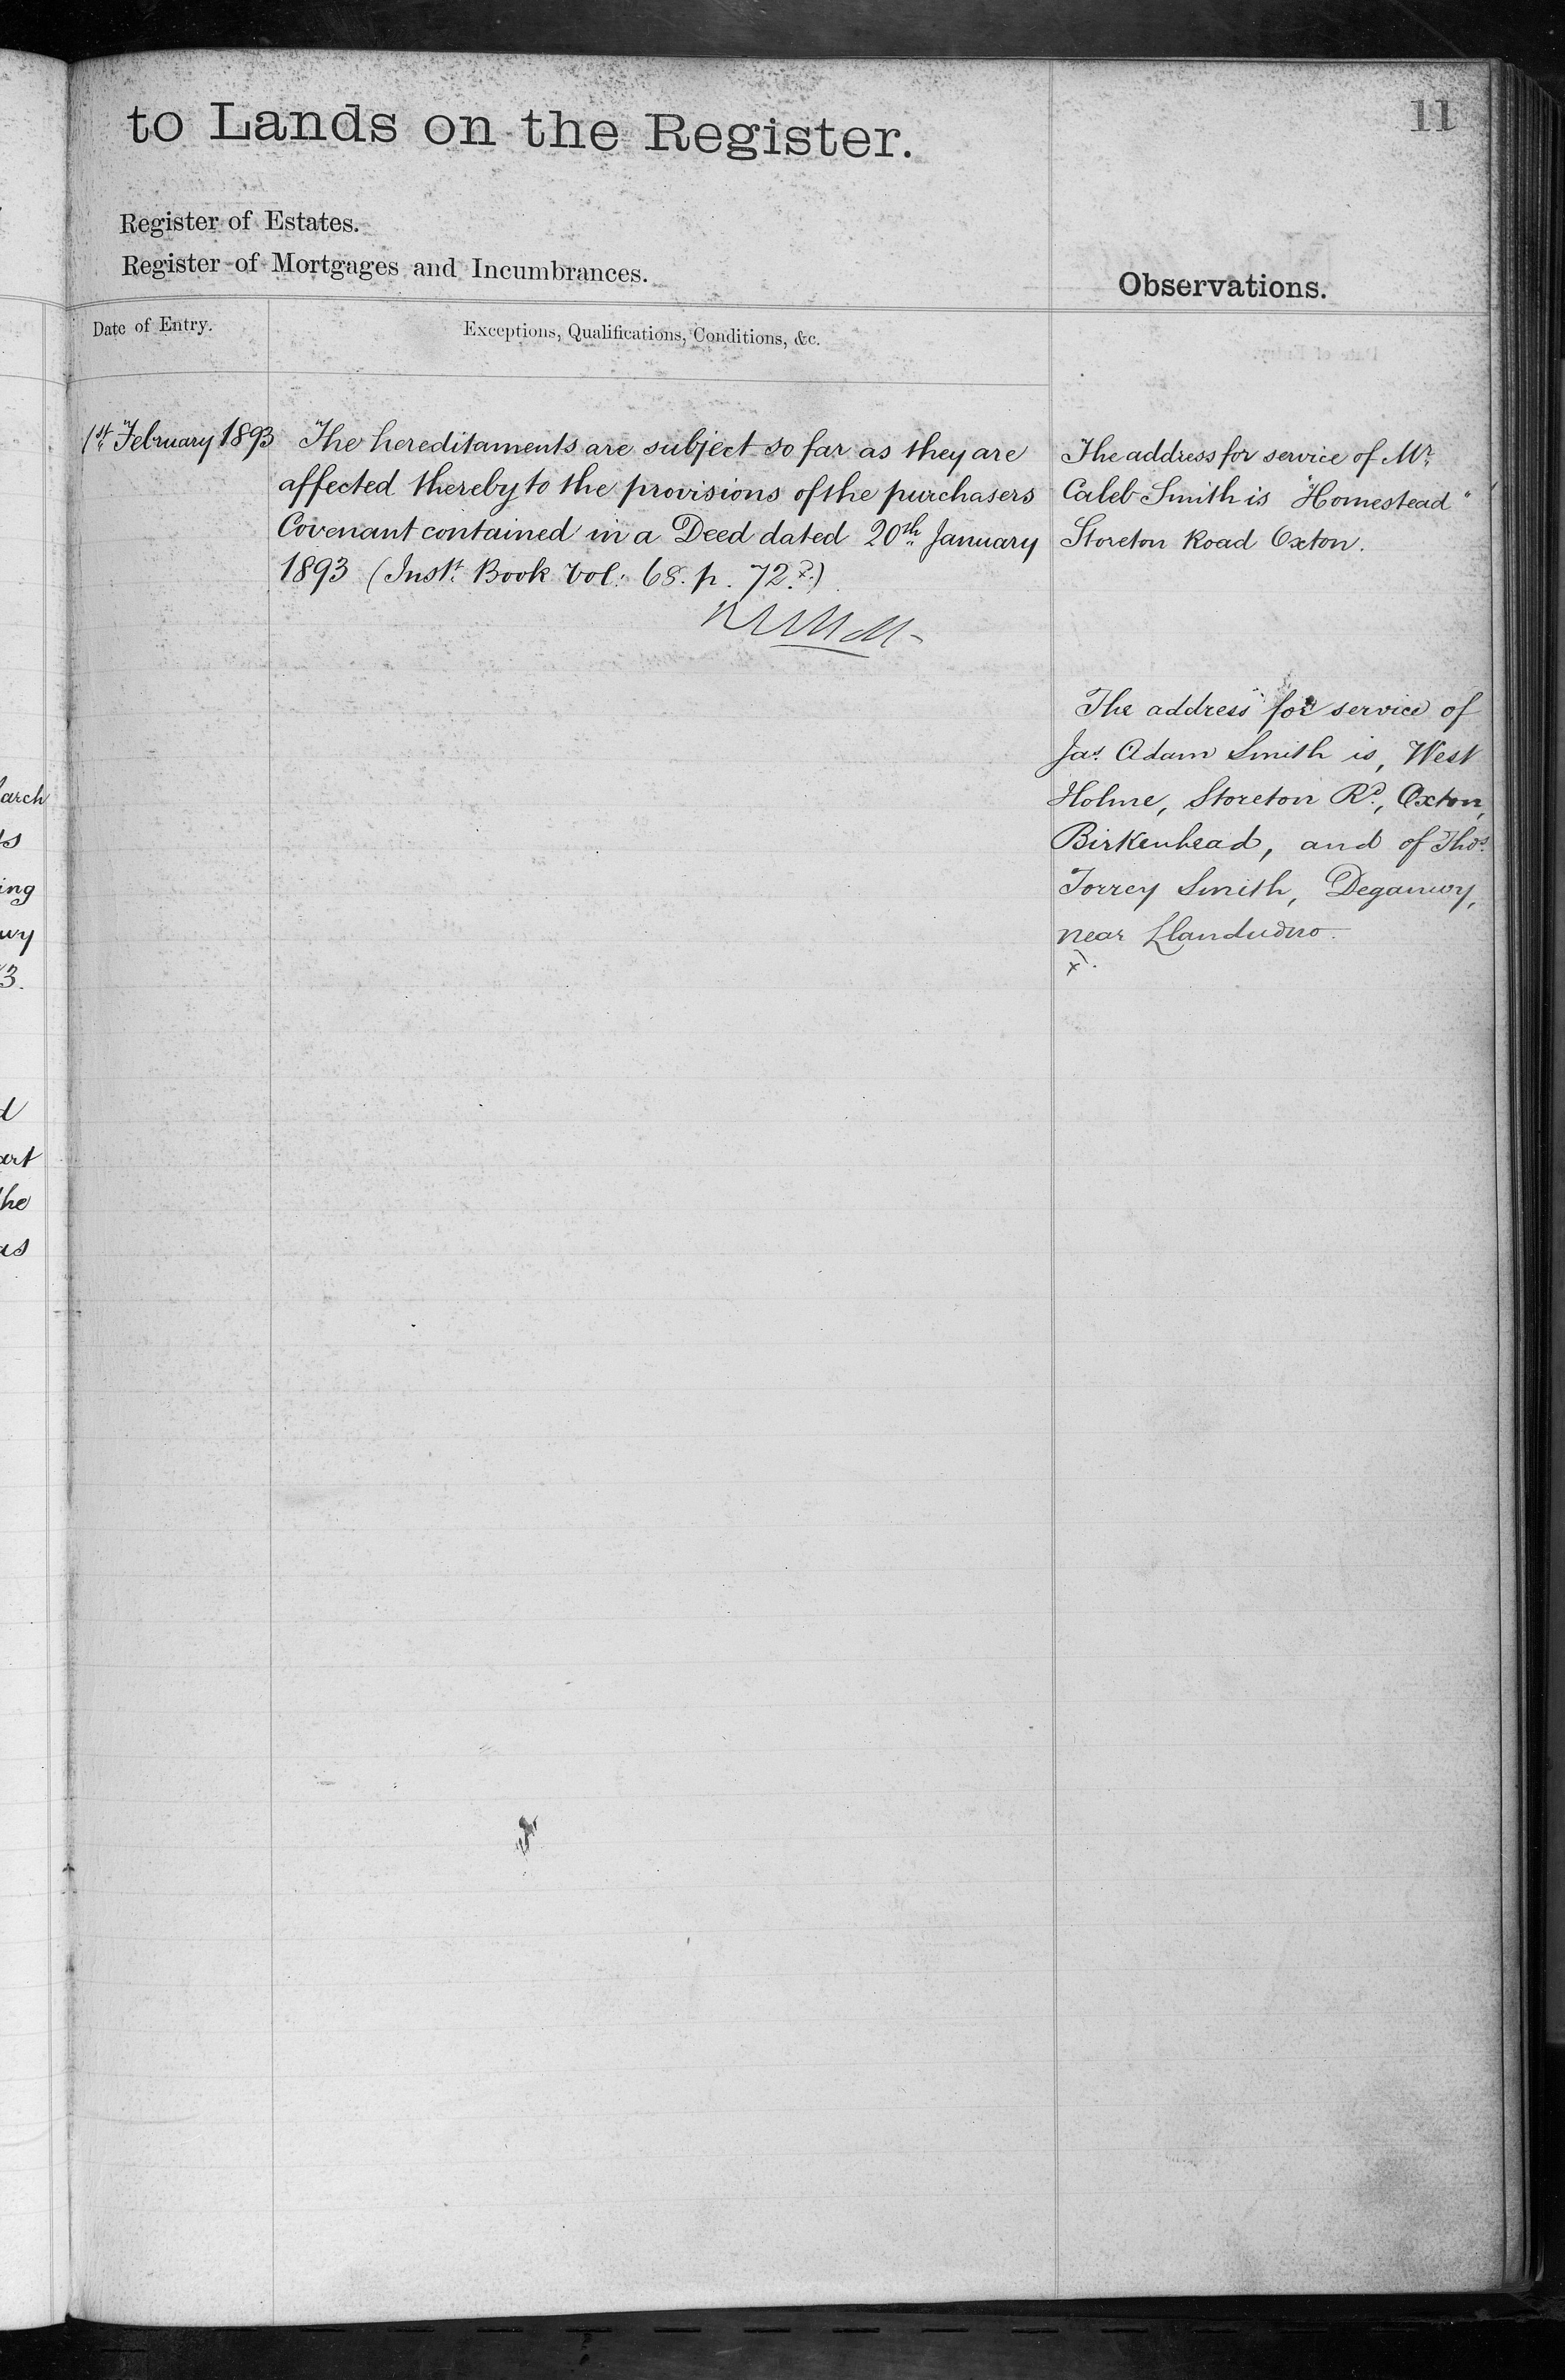 11
to Lands on the Register.
Register of Estates.
Register of Mortgages and Incumbrances.
Observations.
Date of Entry.
Exceptions, Qualifications, Conditions, &c.
1st February 1893
The hereditaments are subject so far as they are
affected thereby to the provisions of the purchasers
Covenant contained in a Deed dated 20th January
1893 (Inst. Book Vol: 68. p. 72
The address for service of Mr.
Caleb Smith is "Homestead"
Storeton Road Oxton.
The address for service of
Jas. Adam Smith is, West
Holme, Storeton Rd., Oxton,
Birkenhead, and of Thos.
Torrey Smith, Deganwy,
near Llandudno.
arch
ts
ing
wy
3.
d
art
the
as